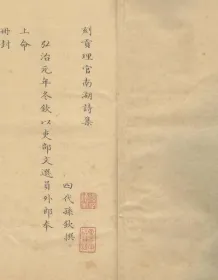 刻貢理官南湖詩集
四代孫欽撰
弘治元年冬欽以吏部文選員外郎奉
上命
冊封